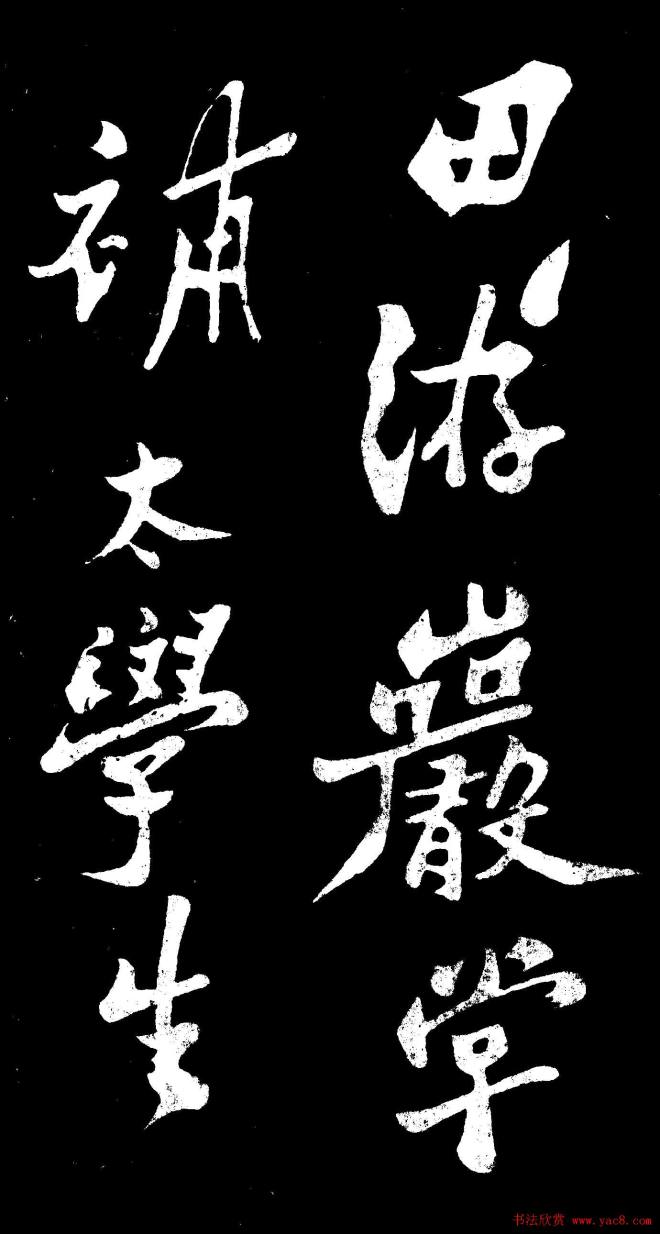 田游巖常
補太學生
书法欣赏 www.yac8.com